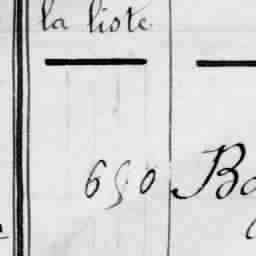 la liste
650